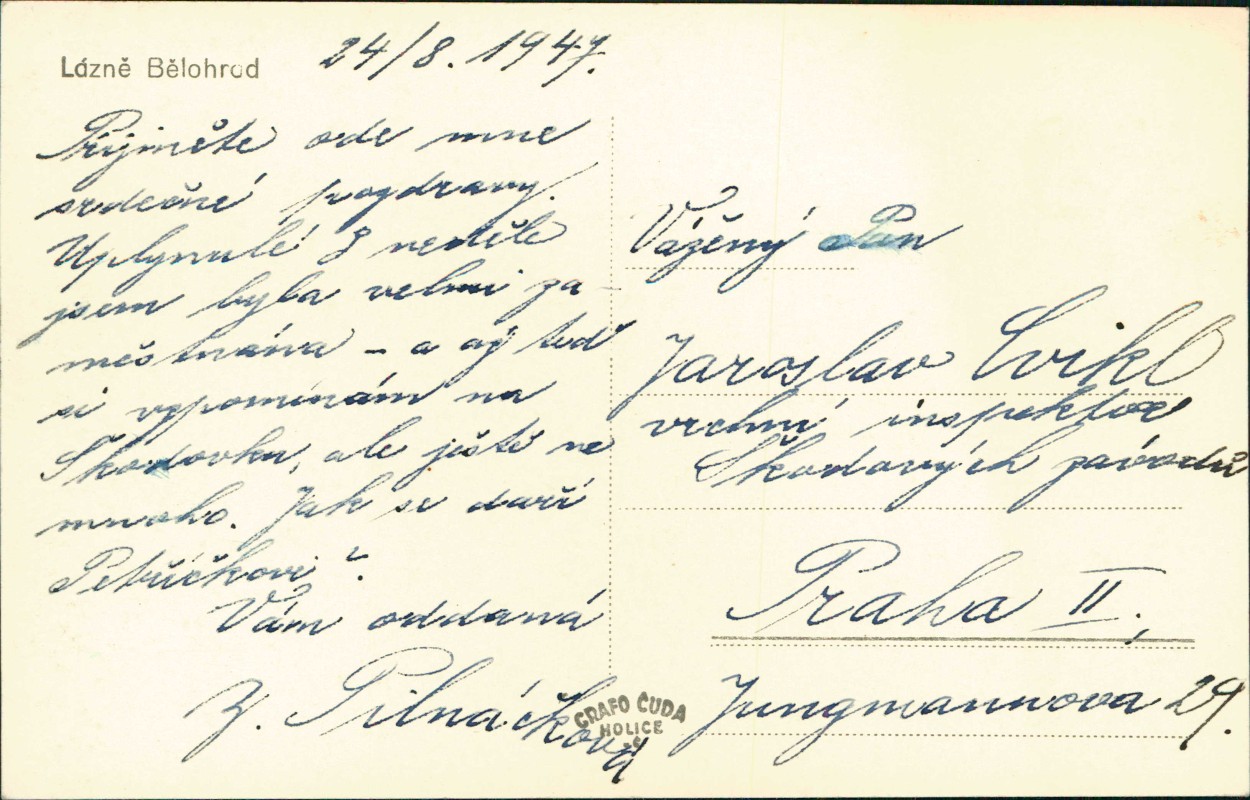 Lázně Bělohrad
24/8. 1947.
Přijměte ode mne
srdečné pozdravy.
Uplynulé 3 neděle
jsem byla velmi za-
městnána – a až teď
si vzpomínám na
Škodovku, ale ještě ne
mnoho. Jak se daří
Petříčkovi?
Vám oddaná
Z. Pilnáčková
GRAFO ČUDA
HOLICE
Vážený Pan
Jaroslav Cvikl
vrchní inspektor
Škodových závodů
Praha II,
Jungmannova 29.